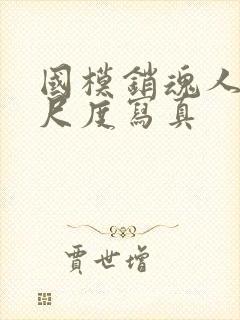 國模銷魂人
尺度寫真
賈世增